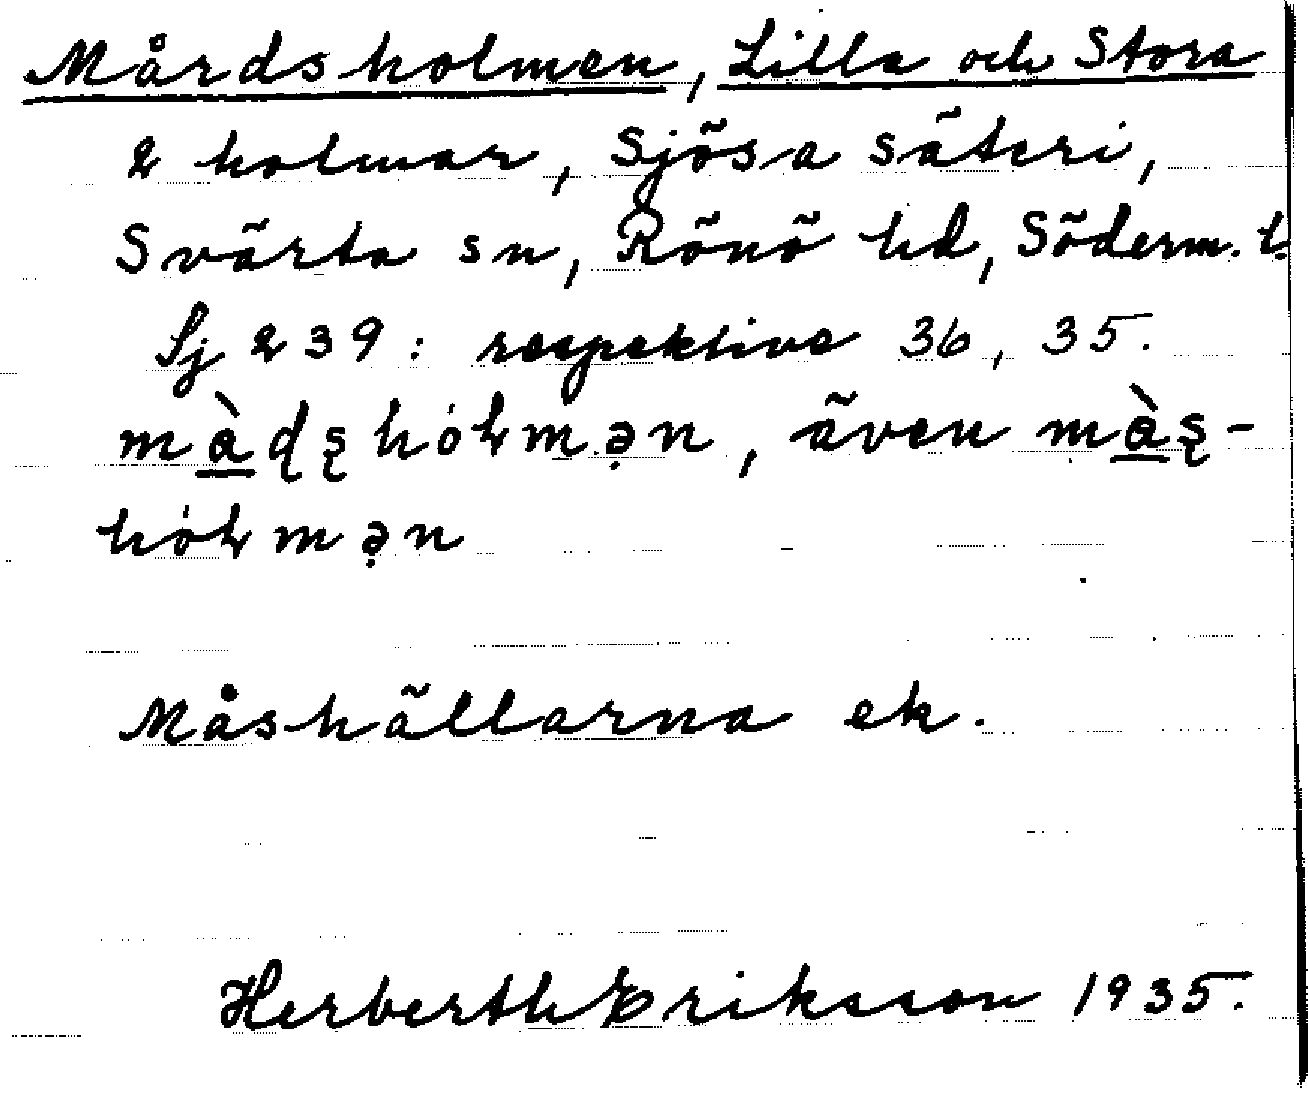 Mårdsholmen, Lilla och Stora
2 holmar, Sjösa säteri,
Svärta sn, Rönö hd, Söderm. l.
Sj 239: respektive 36, 35.
màɖʂhóɫmən, även màʂ-
hóɫmən
Måshällarna ek.
Herberth Eriksson 1935.